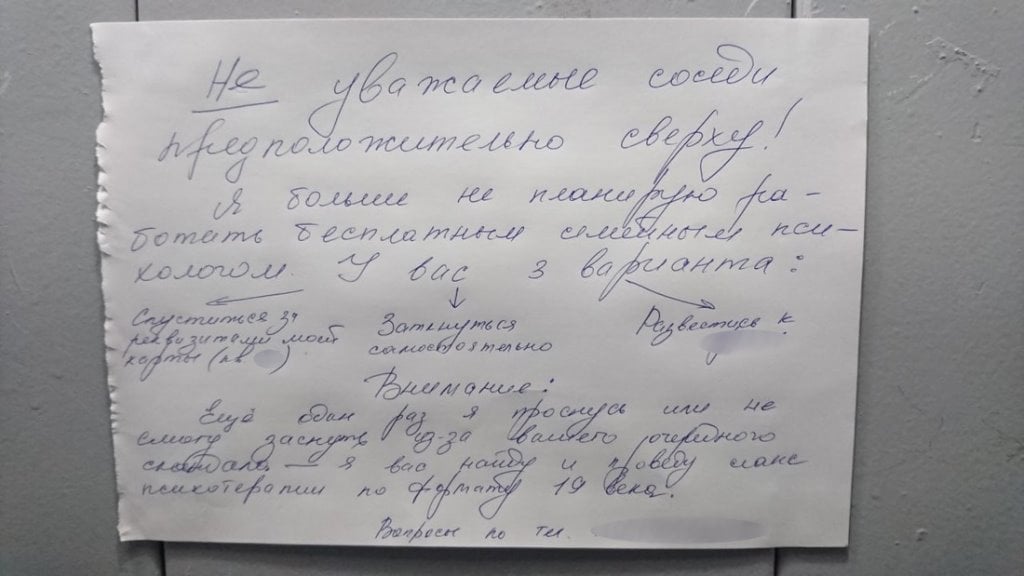 Не уважаемые соседи
предположительно сверху!
Я больше не планирую ра-
ботать бесплатным семейным пси-
хологом. У вас 3 варианта:
Спуститься за
реквизитами моей
карты (кв )
Заткнуться
самостоятельно
Развестись к
Внимание:
Ещё один раз я проснусь или не
смогу заснуть из-за вашего очередного
скандала — я вас найду и проведу сеанс
психотерапии по формату 19 века.
Вопросы по тел.